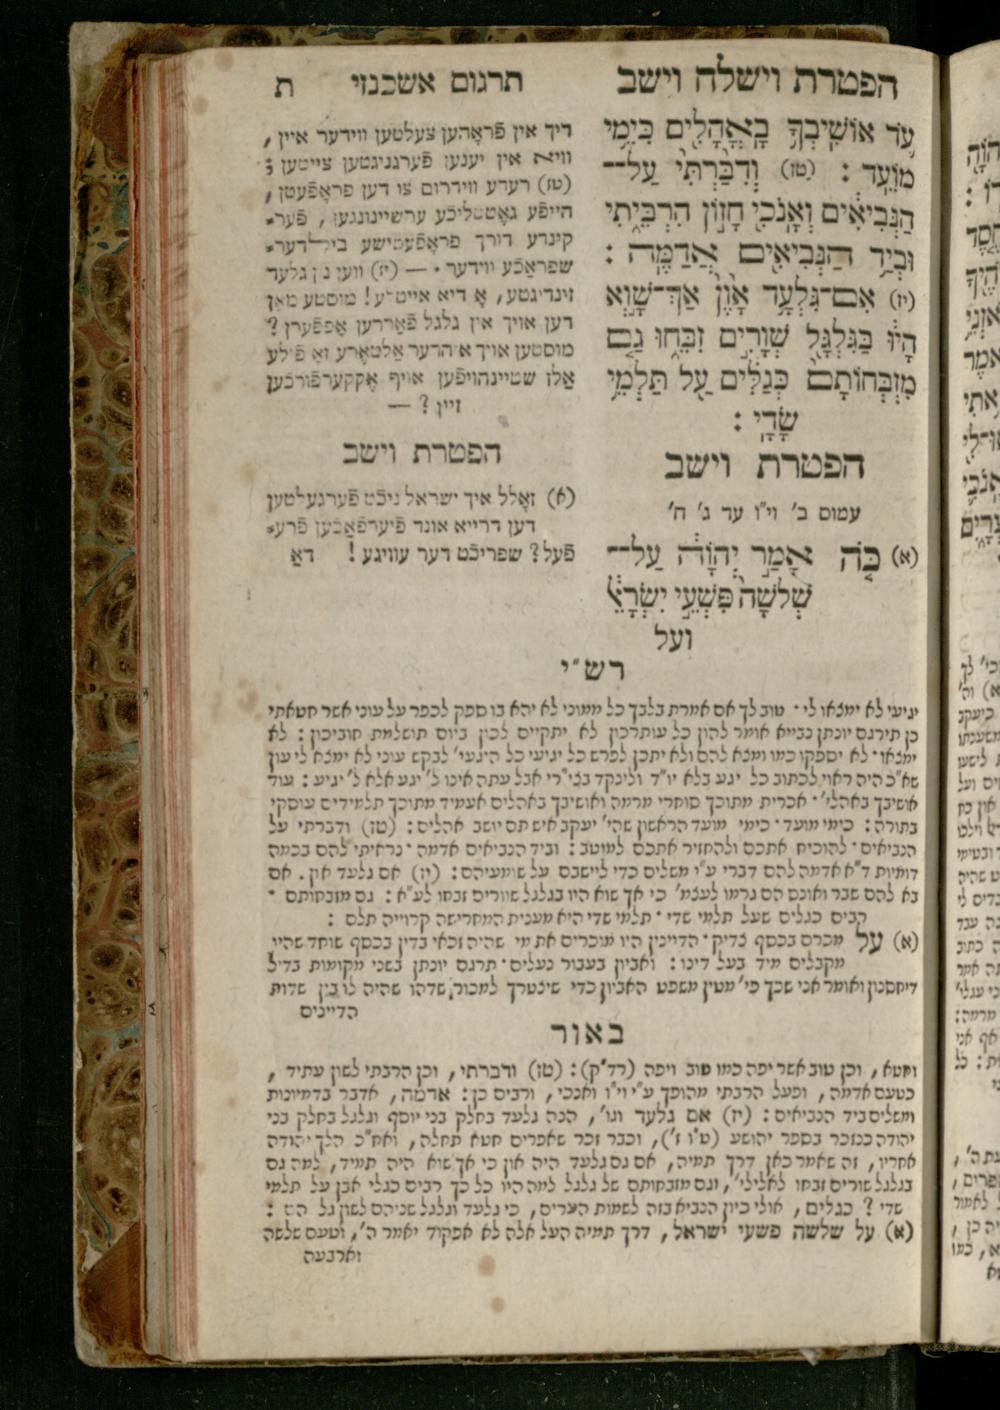 הפטרת וישלח וישב
תרגום אשכנזי
ת
עֹד אוֹשִׁיבְךָ בָאֳהָלִים כִּימֵי
מוֹעֵד : (טז) וְדִבַּרְתִּי עַל־
הַנְּבִיאִים וְאָנֹכִי חָזוֹן הִרְבֵּיתִי
וּבְיַד הַנְּבִיאִים אֲדַמֶּה :
(יז) אִם־גִּלְעָד אָוֶן אַךְ־שָׁוְא
הָיוּ בַּגִּלְגָּל שְׁוָרִים זִבֵּחוּ גַּם
מִזְבְּחוֹתָם כְּגַלִּים עַל תַּלְמֵי
שָׂדָי :
הפטרת וישב
עמוס ב׳ וי״ו עד ג׳ ח׳
(א) כֹּה אָמַר יְהוָֹה עַל־
שְׁלֹשָׁה פִּשְׁעֵי יִשְׂרָאֵל
ועל
דיך אין פֿראָהען צעלטען ווידער איין ,
וויא אין יענען פֿערגניגטען צייטען ;
(טז) רעדע ווידרום צו דען פראָפֿעטן ,
הייפֿע געטטליכֿע ערשיינונגען , פֿער=
קינדע דורך פראָפֿעטישע בילדער=
שפראַכֿע ווידער . — (יז) ווען נון גלעד
זינדיגטע, אָ דיא אייטלע ! מוסטע מאַן
דען אויך אין גלגל פֿאַררען אָפּפֿערן ?
מוסטען אויך איהרער אַלטאַרע זאָ פֿילע
אַלז שטיינהויפֿען אויף אַקקערפֿורכֿען
זיין ? —
הפטרת וישב
(א) זאָלל איך ישראל ניכֿט פֿערגעלטען
דען דרייא אונד פֿיערפֿאַכֿען פֿרע=
פֿעל ? שפריכֿט דער עוויגע ! דאַ
רש״י
יגיעי לא ימצאו לי · טוב לך אם אמרת בלבך כל ממוני לא יהא בו ספק לכפר על עוני אשר חטאתי
כן תירגם יונתן נבייא אומר להון כל עותרכון לא יתקיים לכון ביום תושלמת חוביכון : לא
ימצאו · לא יספקו כמו ומצא להם ולא יתכן לפרש כל יגיעי כל היגעי׳ לבקש עוני לא ימצא לי עון
שא״כ היה ראוי לכתוב כל יגע בלא יו״ד ולינקד בצי״רי אבל עתה אינו ל׳ יגע אלא ל׳ יגיע : עוד
אושיבך באהלי׳ · אכרית מתוכך סוחרי מרמה ואושיבך באהלים אעמיד מתוכך תלמידים עוסקי
בתורה : כימי מועד · כימי מועד הראשון שהי׳ יעקב איש תם יושב אהלים : (טז) ודברתי על
הנביאים · להוכיח אתכם ולהחזיר אתכם למוטב : וביד הנביאים אדמה · נראיתי להם בכמה
דומיות ד״א אדמה להם דברי ע״י משלים כדי ליישבם על שומעיהם : (יז) אם גלעד און . אם
בא להם שבר ואונם הם גרמו לעצמ׳ כי אך שוא היו בגלגל שוורים זבחו לע״א : גם מזבחותם ·
רבים כגלים שעל תלמי שדי · תלמי שדי היא מענית המחרישה קרוייה תלם :
(א) על מכרם בכסף צדיק · הדיינין היו מוכרים את מי שהיה זכאי בדין בכסף שוחד שהיו
מקבלים מיד בעל דינו : ואביון בעבור נעלים · תרגם יונתן בשני מקומות בדיל
דיחסנון ואומר אני שכך פי׳ מטין משפט האביון כדי שיצטרך למכור שדהו שהיה לו בין שדות
הדיינים
באור
וחטא, וכן טוב אשר יפה כמו טוב ויפה (רד״ק) : (טז) ודברתי, וכן הרבתי לשון עתיד ,
כטעם אדמה, ופעל הרבתי מהופך ע״י וי״ו ואנכי, ורבים כן : אדמה, אדבר בדמיונות
ומשלים ביד הנביאים : (יז) אם גלעד וגו׳, הנה גלעד בחלק בני יוסף וגלגל בחלק בני
יהודה כנזכר בספר יהושע (ט״ו ז׳), וכבר זכר שאפרים חטא תחלה, ואח״כ הלך יהודה
אחריו, זה שאמר כאן דרך תמיה, אם גם גלעד היה און כי אך שוא היה תמיד, למה גם
בגלגל שורים זבחו לאלילי׳, וגם מזבחותם של גלגל למה היו כל כך רבים כגלי אבן על תלמי
שדי ? כגלים, אולי כיון הנביא בזה לשמות הערים, כי גלעד וגלגל שניהם לשון גל הם :
(א) על שלשה פשעי ישראל, דרך תמיה העל אלה לא אפקוד יאמר ה׳, וטעם שלשה
וארבעה